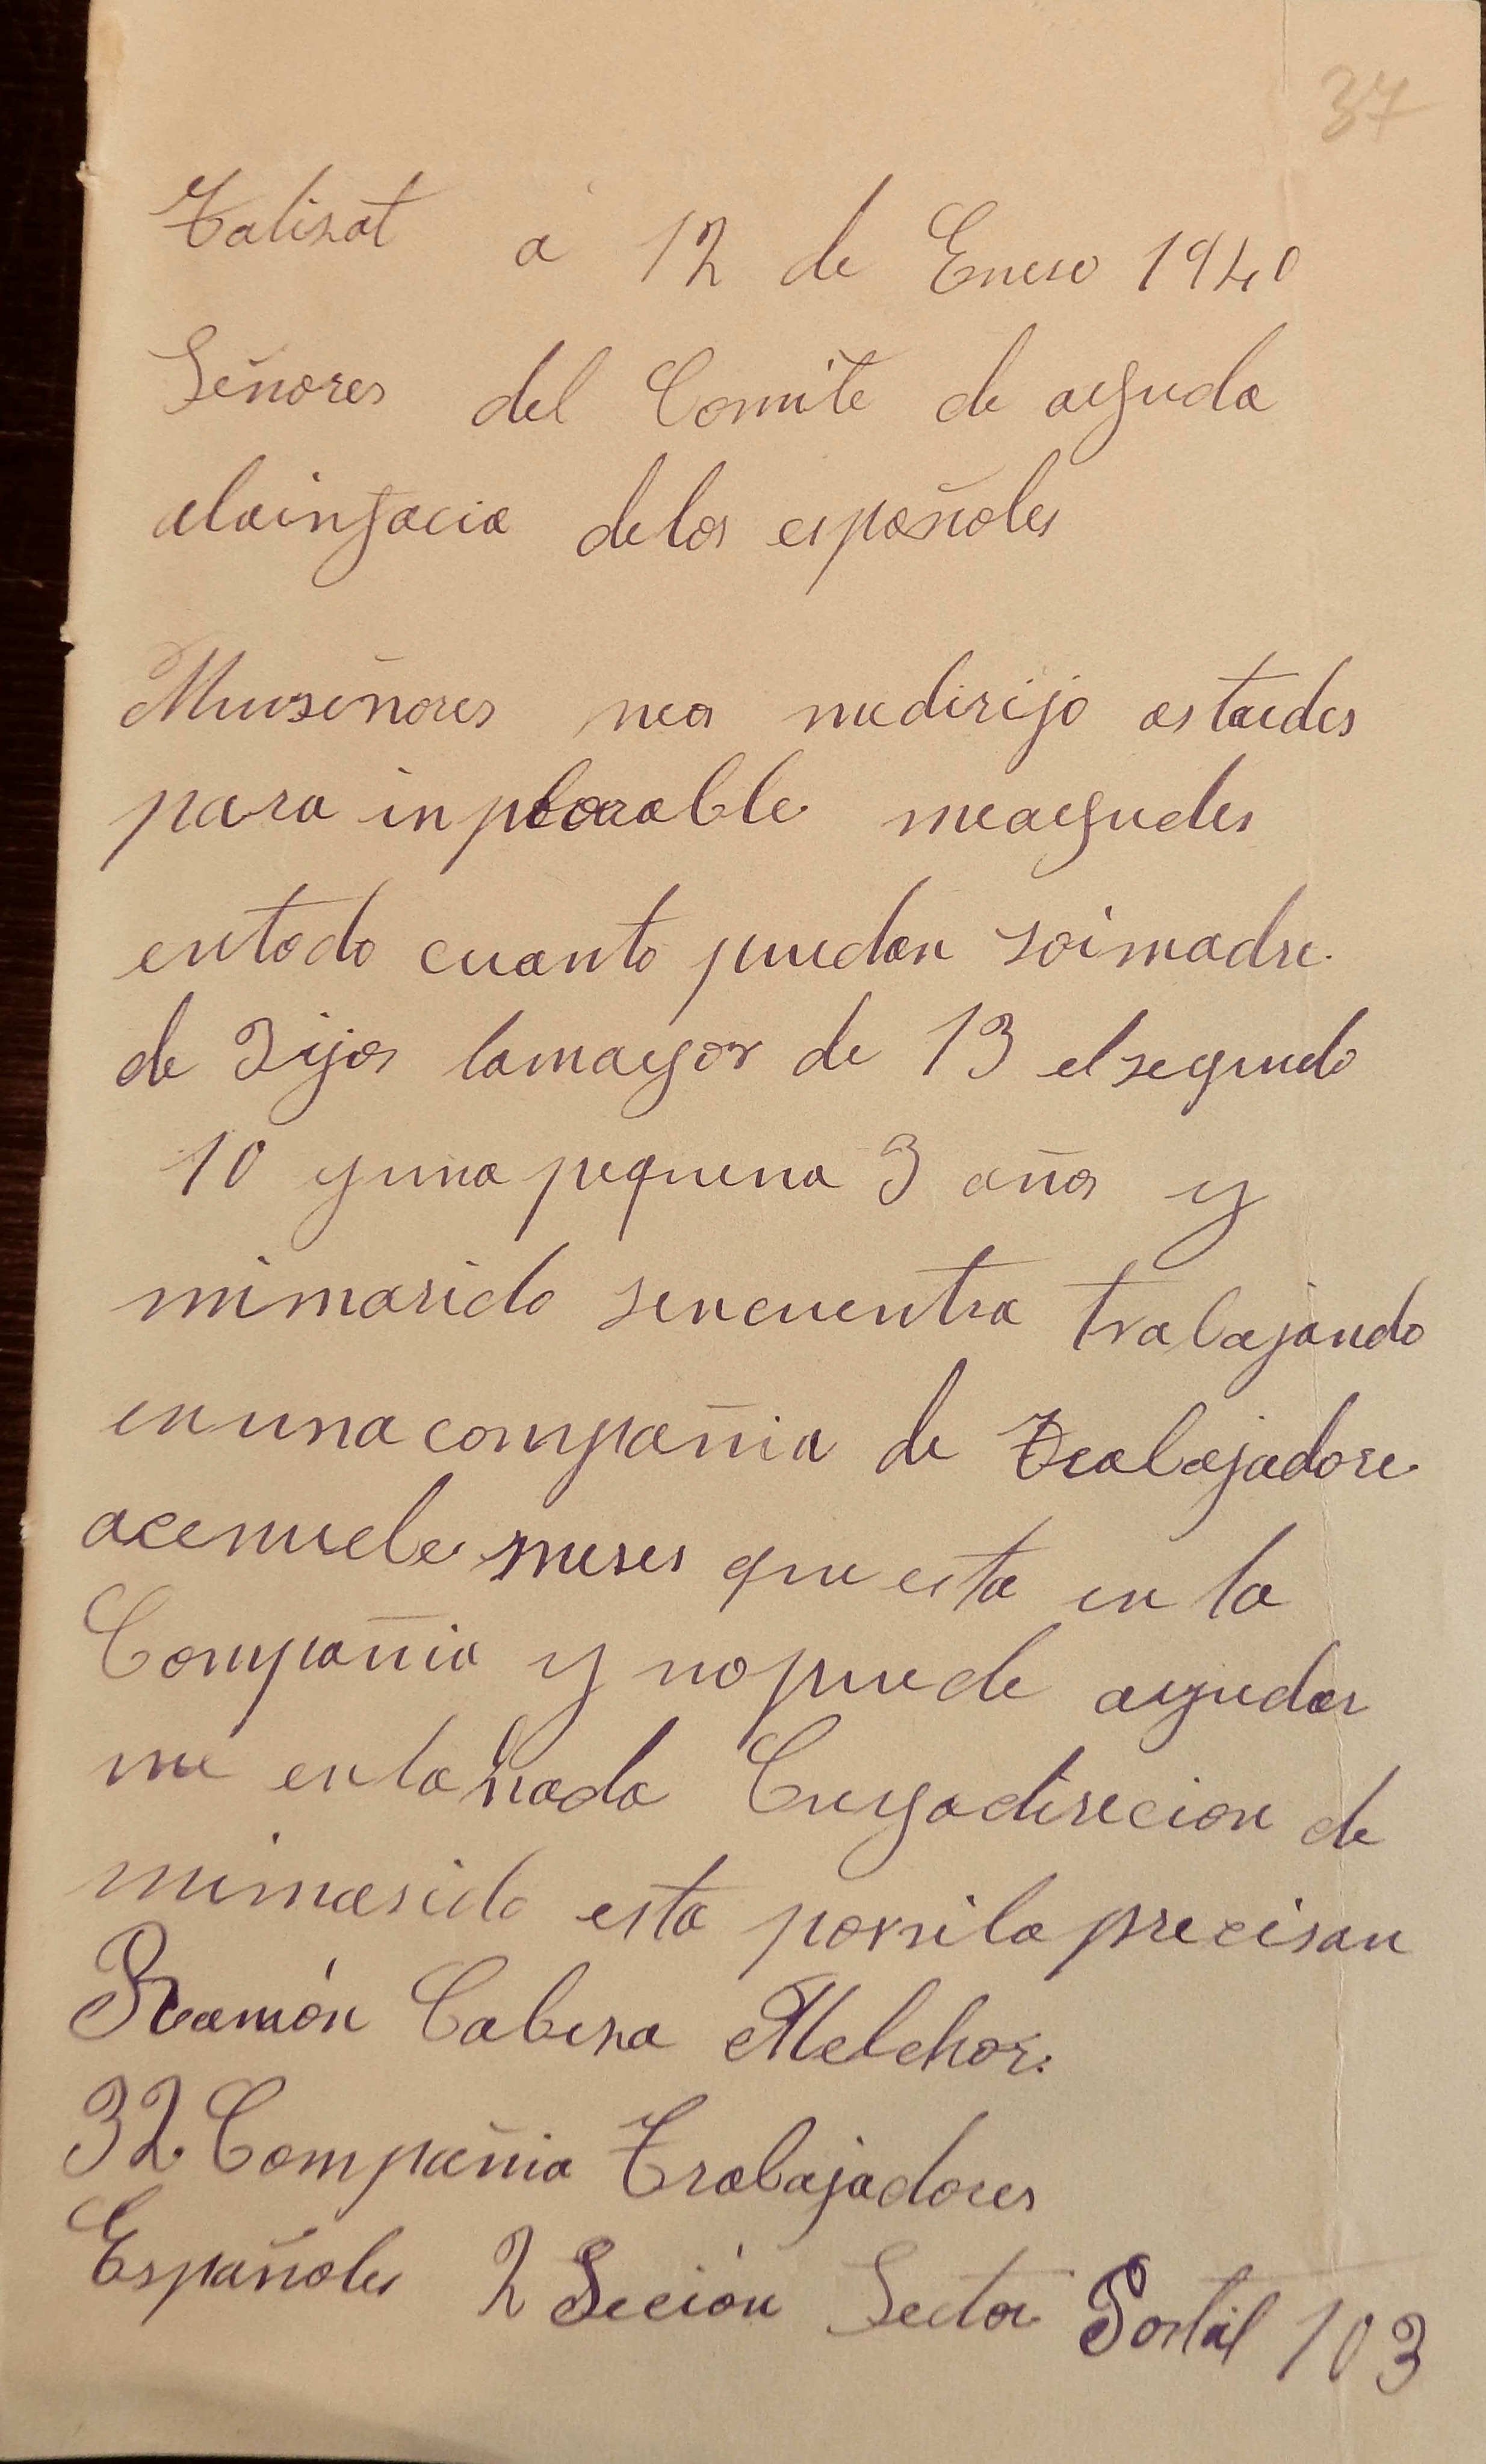 37
Talisat a 12 de Enero 1940
Señores del Comite de ayuda
alainfacia delos españoles
Muiseñores mios medirijo astaedes
para inplorarle meayudes
entodo cuanto puedan soimadre
de 3 ijos lamayor de 13 elsegundo
10 yuna pequena 3 años y
mimarido sencuentra trabajando
enunacompañia de Trabajadore
acenuebe meses que esta en la
Compañia y nopuede ayudar
me enlanada Cuyadirecion de
mimarido esta porsila precisan
Ramón Cabera Melchor.
32 Compañia Trabajadores
Españoles 2 Seción Sector Postal 103